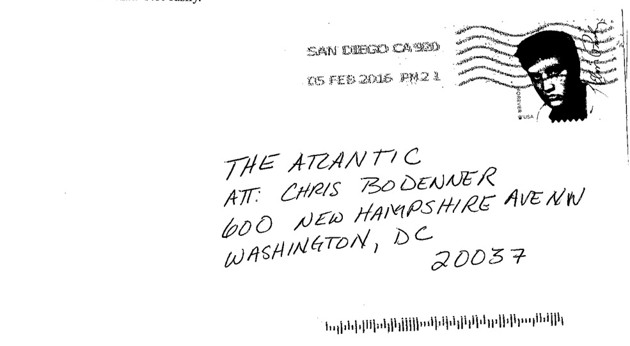 easily.
SAN DIEGO CA 920
05 FEB 2016 PM 2 L
FOREVER
USA
THE ATLANTIC
ATT: CHRIS BODENNER
600 NEW HAMPSHIRE AVE NW
WASHINGTON, DC
20037